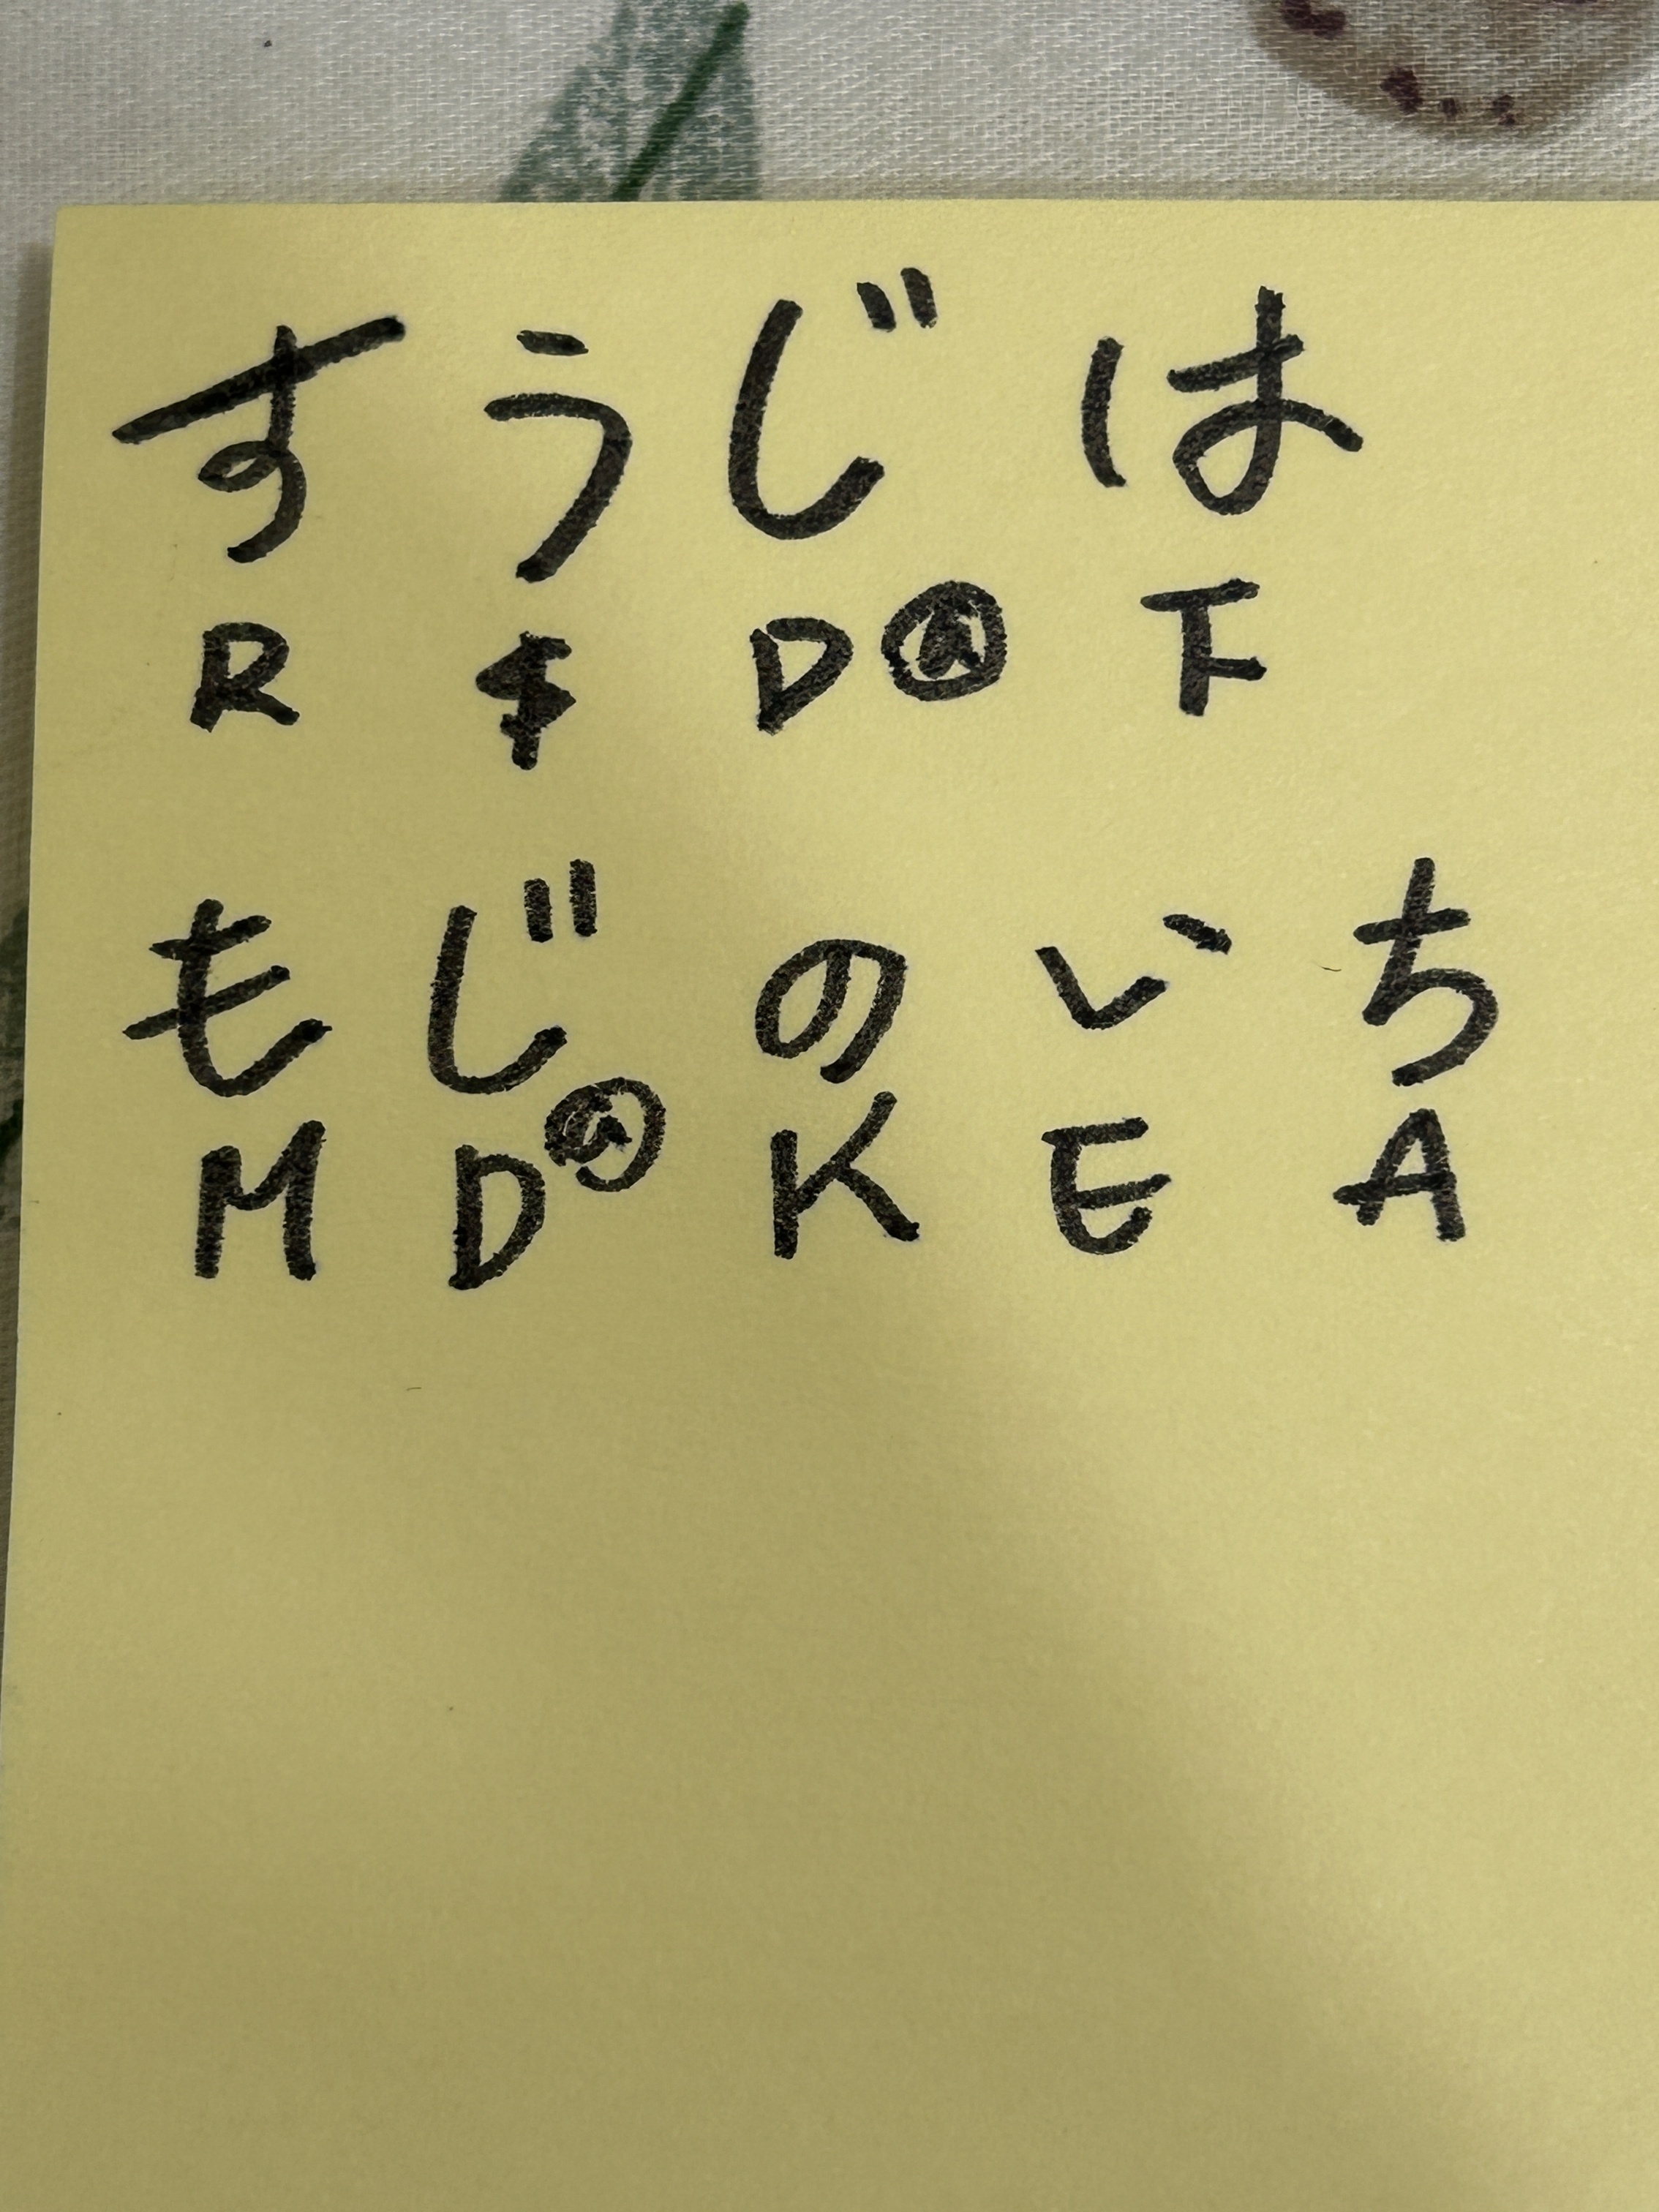 すうじは
R $ D@ F
もじのいち
M D@ K E A